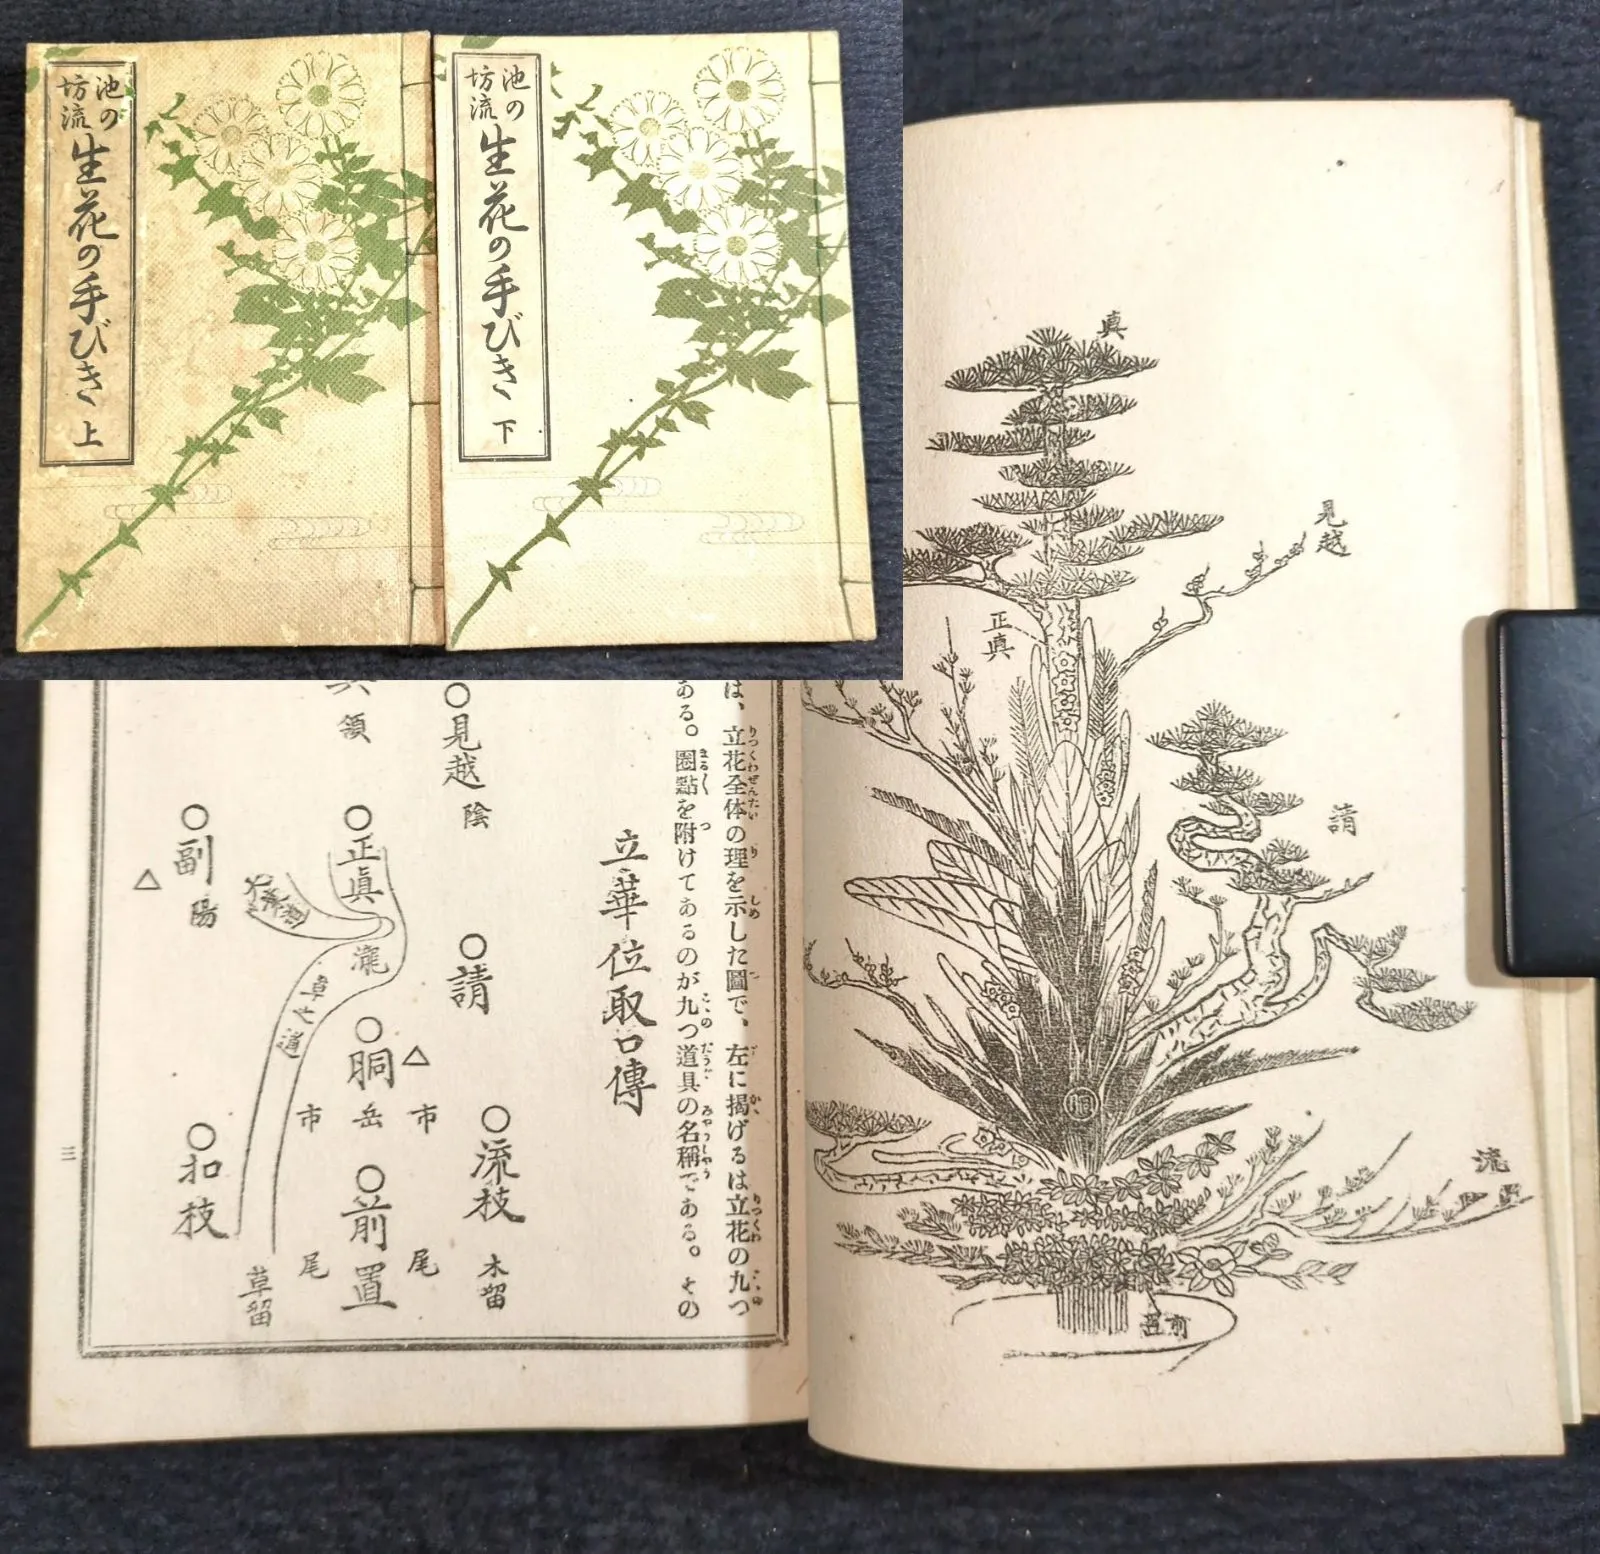 池の
坊流
生花の手びき 上
池の
坊流
生花の手びき 下
眞
見越
正眞
請
胴
流
前置
は、立花全体の理を示した圖で、左に揭げるは立花の九つ
ある。圏點を附けてあるのが九つ道具の名稱である。その
立華位取口傳
○見越
陰
○請
○流枝
木留
領
○正眞
瀧
○胴
岳
○前置
△
市
尾
市
尾
草之道
草留
○副
陽
△
○扣枝
三